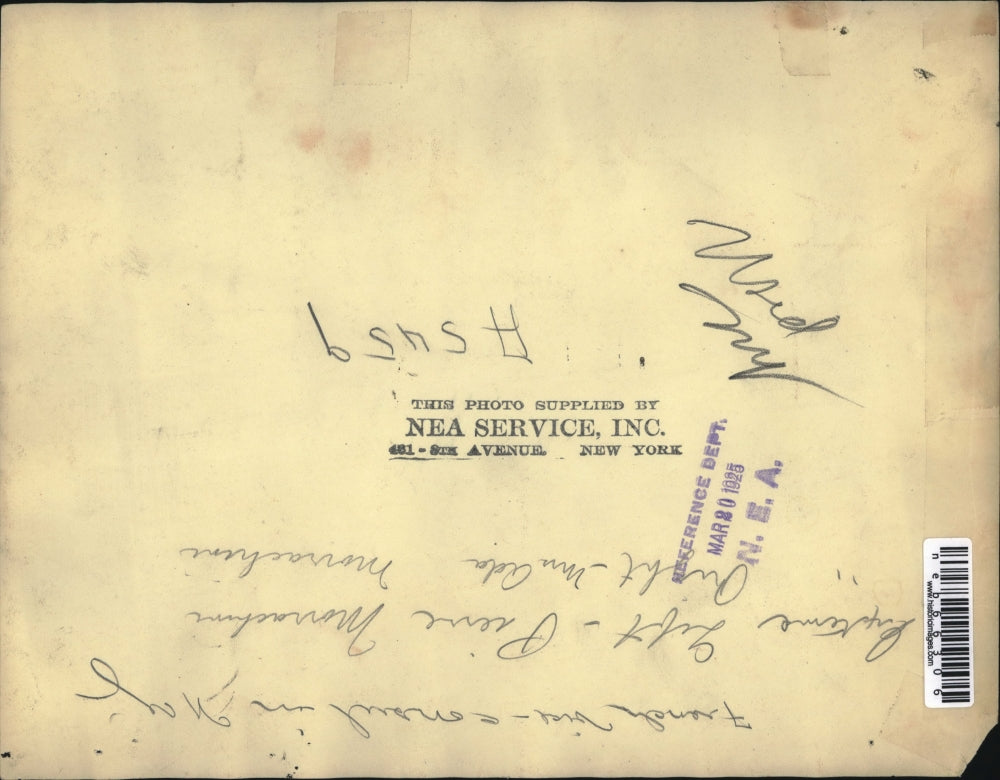 THIS PHOTO SUPPLIED BY
NEA SERVICE, INC.
461 - 8TH AVENUE. NEW YORK
REFERENCE DEPT.
MAR 20 1925
N. E. A.
A5459
French Vice-consul in N.Y.C
Extreme Left - Pierre
" Right - Mrs Ada
www.historicimages.com
neb66306